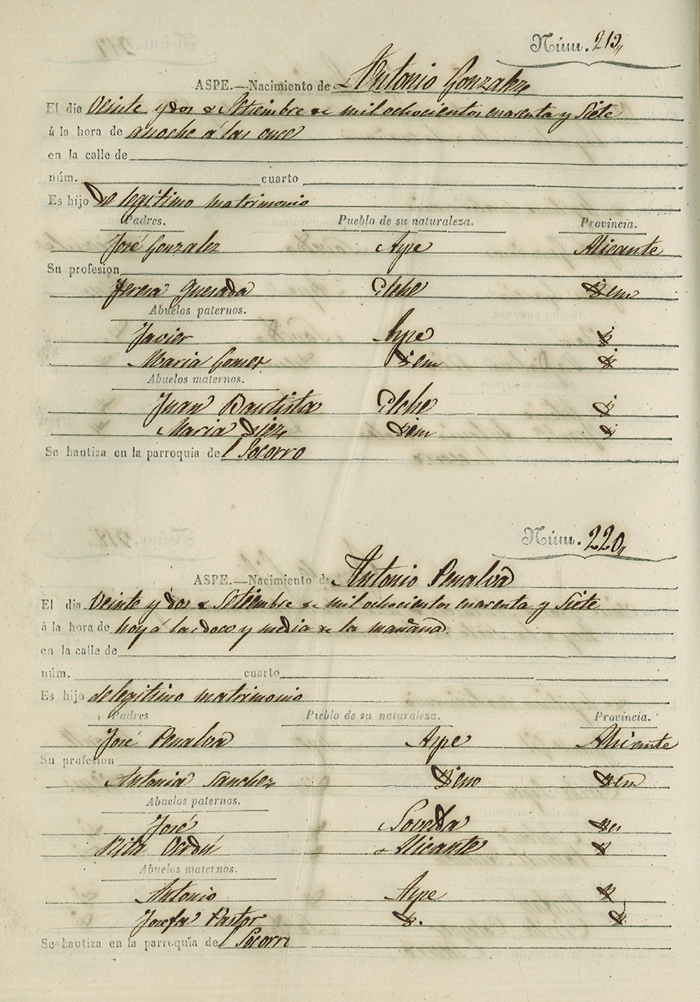 Núm. 219,
ASPE.—Nacimiento de Antonio Gonzalez
El dia Veinte y dos de Setiembre de mil ochocientos cuarenta y Siete
á la hora de anoche á las once
en la calle de
núm. cuarto
Es hijo de legitimo matrimonio
Padres. Pueblo de su naturaleza. Provincia.
José Gonzalez Aspe Alicante
Su profesion
Teresa Quesada Elche Idem
Abuelos paternos.
Javier Aspe id
Maria Gomez Idem id
Abuelos maternos.
Juan Bautista Elche id
Maria Diez Idem id
Se bautiza en la parroquia del Socorro
Núm. 220,
ASPE.—Nacimiento de Antonio Penalva
El dia Veinte y dos de Setiembre de mil ochocientos cuarenta y Siete
á la hora de hoy á las doce y media de la mañana
en la calle de
núm. cuarto
Es hijo de legitimo matrimonio
Padres Pueblo de su naturaleza. Provincia.
José Penalva Aspe Alicante
Su profesion
Antonia Sanchez Idem Idem
Abuelos paternos.
José
Rita Alicante
Abuelos maternos.
Antonio Aspe
Josefa Pastor
Se bautiza en la parroquia del Socorro